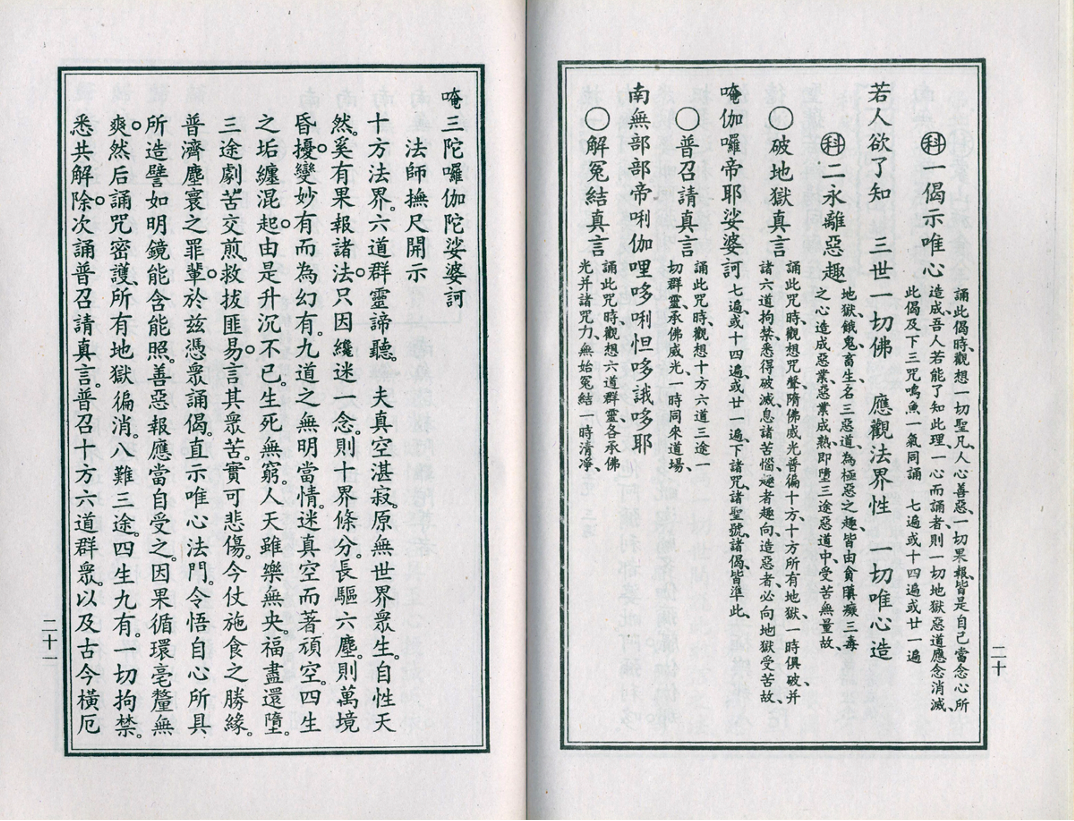 ㊢一偈示唯心
誦此偈時、觀想一切聖凡、人心善惡、一切果報、皆是自己當念心所
造成、吾人若能了知此理、一心而誦者、則一切地獄惡道應念消滅、
此偈及下三咒鳴魚一氣同誦　七遍或十四遍或廿一遍
若人欲了知　三世一切佛　應觀法界性　一切唯心造
㊢二永離惡趣
地獄、餓鬼、畜生、名三惡道、為極惡之趣、皆由貪瞋癡三毒
之心造成惡業、惡業成熟、即墮三途惡道中、受苦無量故、
〇破地獄真言
誦此咒時、觀想咒聲隋佛威光普徧十方、十方所有地獄、一時俱破、并
諸六道拘禁、悉得破滅、息諸苦惱、極者趣向、造惡者必向地獄受苦故、
唵伽囉帝耶娑婆訶
七遍、或十四遍、或廿一遍、下諸咒、諸聖號、諸偈、皆準此、
〇普召請真言
誦此咒時、觀想十方六道三途一
切群靈、承佛威光、一時同來道場、
南無部部帝唎伽哩哆唎怛哆誐哆耶
〇解冤結真言
誦此咒時、觀想六道群靈、各承佛
光并諸咒力、無始冤結一時清凈、
二十
唵三陀囉伽陀娑婆訶
法師撫尺開示
十方法界。六道群靈諦聽。　夫真空湛寂。原無世界眾生。自性天
然。奚有果報諸法。只因纔迷一念。則十界條分。長驅六塵。則萬境
昏擾。變妙有而為幻有。九道之無明當情。迷真空而著頑空。四生
之垢纏混起。由是升沉不已。生死無窮。人天雖樂無央。福盡還墮。
三途劇苦交煎。救拔匪易。言其眾苦。實可悲傷。今仗施食之勝緣。
普濟塵寰之罪輩。於茲憑眾誦偈。直示唯心法門。令悟自心所具
所造。譬如明鏡能含能照。善惡報應當自受之。因果循環毫釐無
爽。然后誦咒密護。所有地獄徧消。八難三途。四生九有。一切拘禁。
悉共解除。次誦普召請真言。普召十方六道群眾。以及古今橫厄
二十一